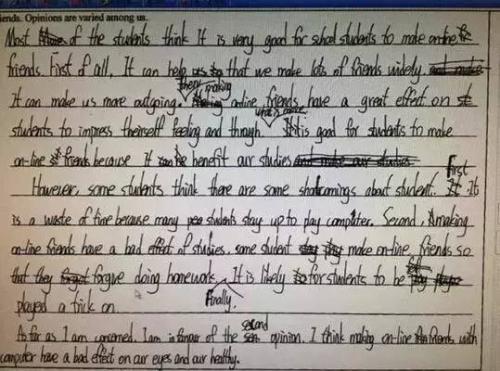 iends. Opinions are varied among us.
Most of the students think It is very good for school students to make online
friends. First of all, It can help that we make lots of friends widely
It can make us more outgoing. Then, making online friends have a great effect on
students to impress theirself feeling and though. what is more It is good for students to make
on-line friends because it can benefit our studies
However, some students think there are some shortcomings about student. First it
is a waste of time because many students stay up to play computer. Second, making
on-line friends have a bad effect of studies. some student make on-line friends so
that they forgive doing homework. Finally, It is likely for students to be
played a trick on
As far as I am concerned, I am in favour of the second opinion. I think making on-line friends with
computer have a bad effect on our eyes and our healthy.